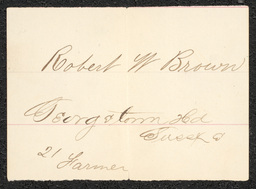 Robert W Brown
Georgetown Hd
Sussex Co
21
Farmer